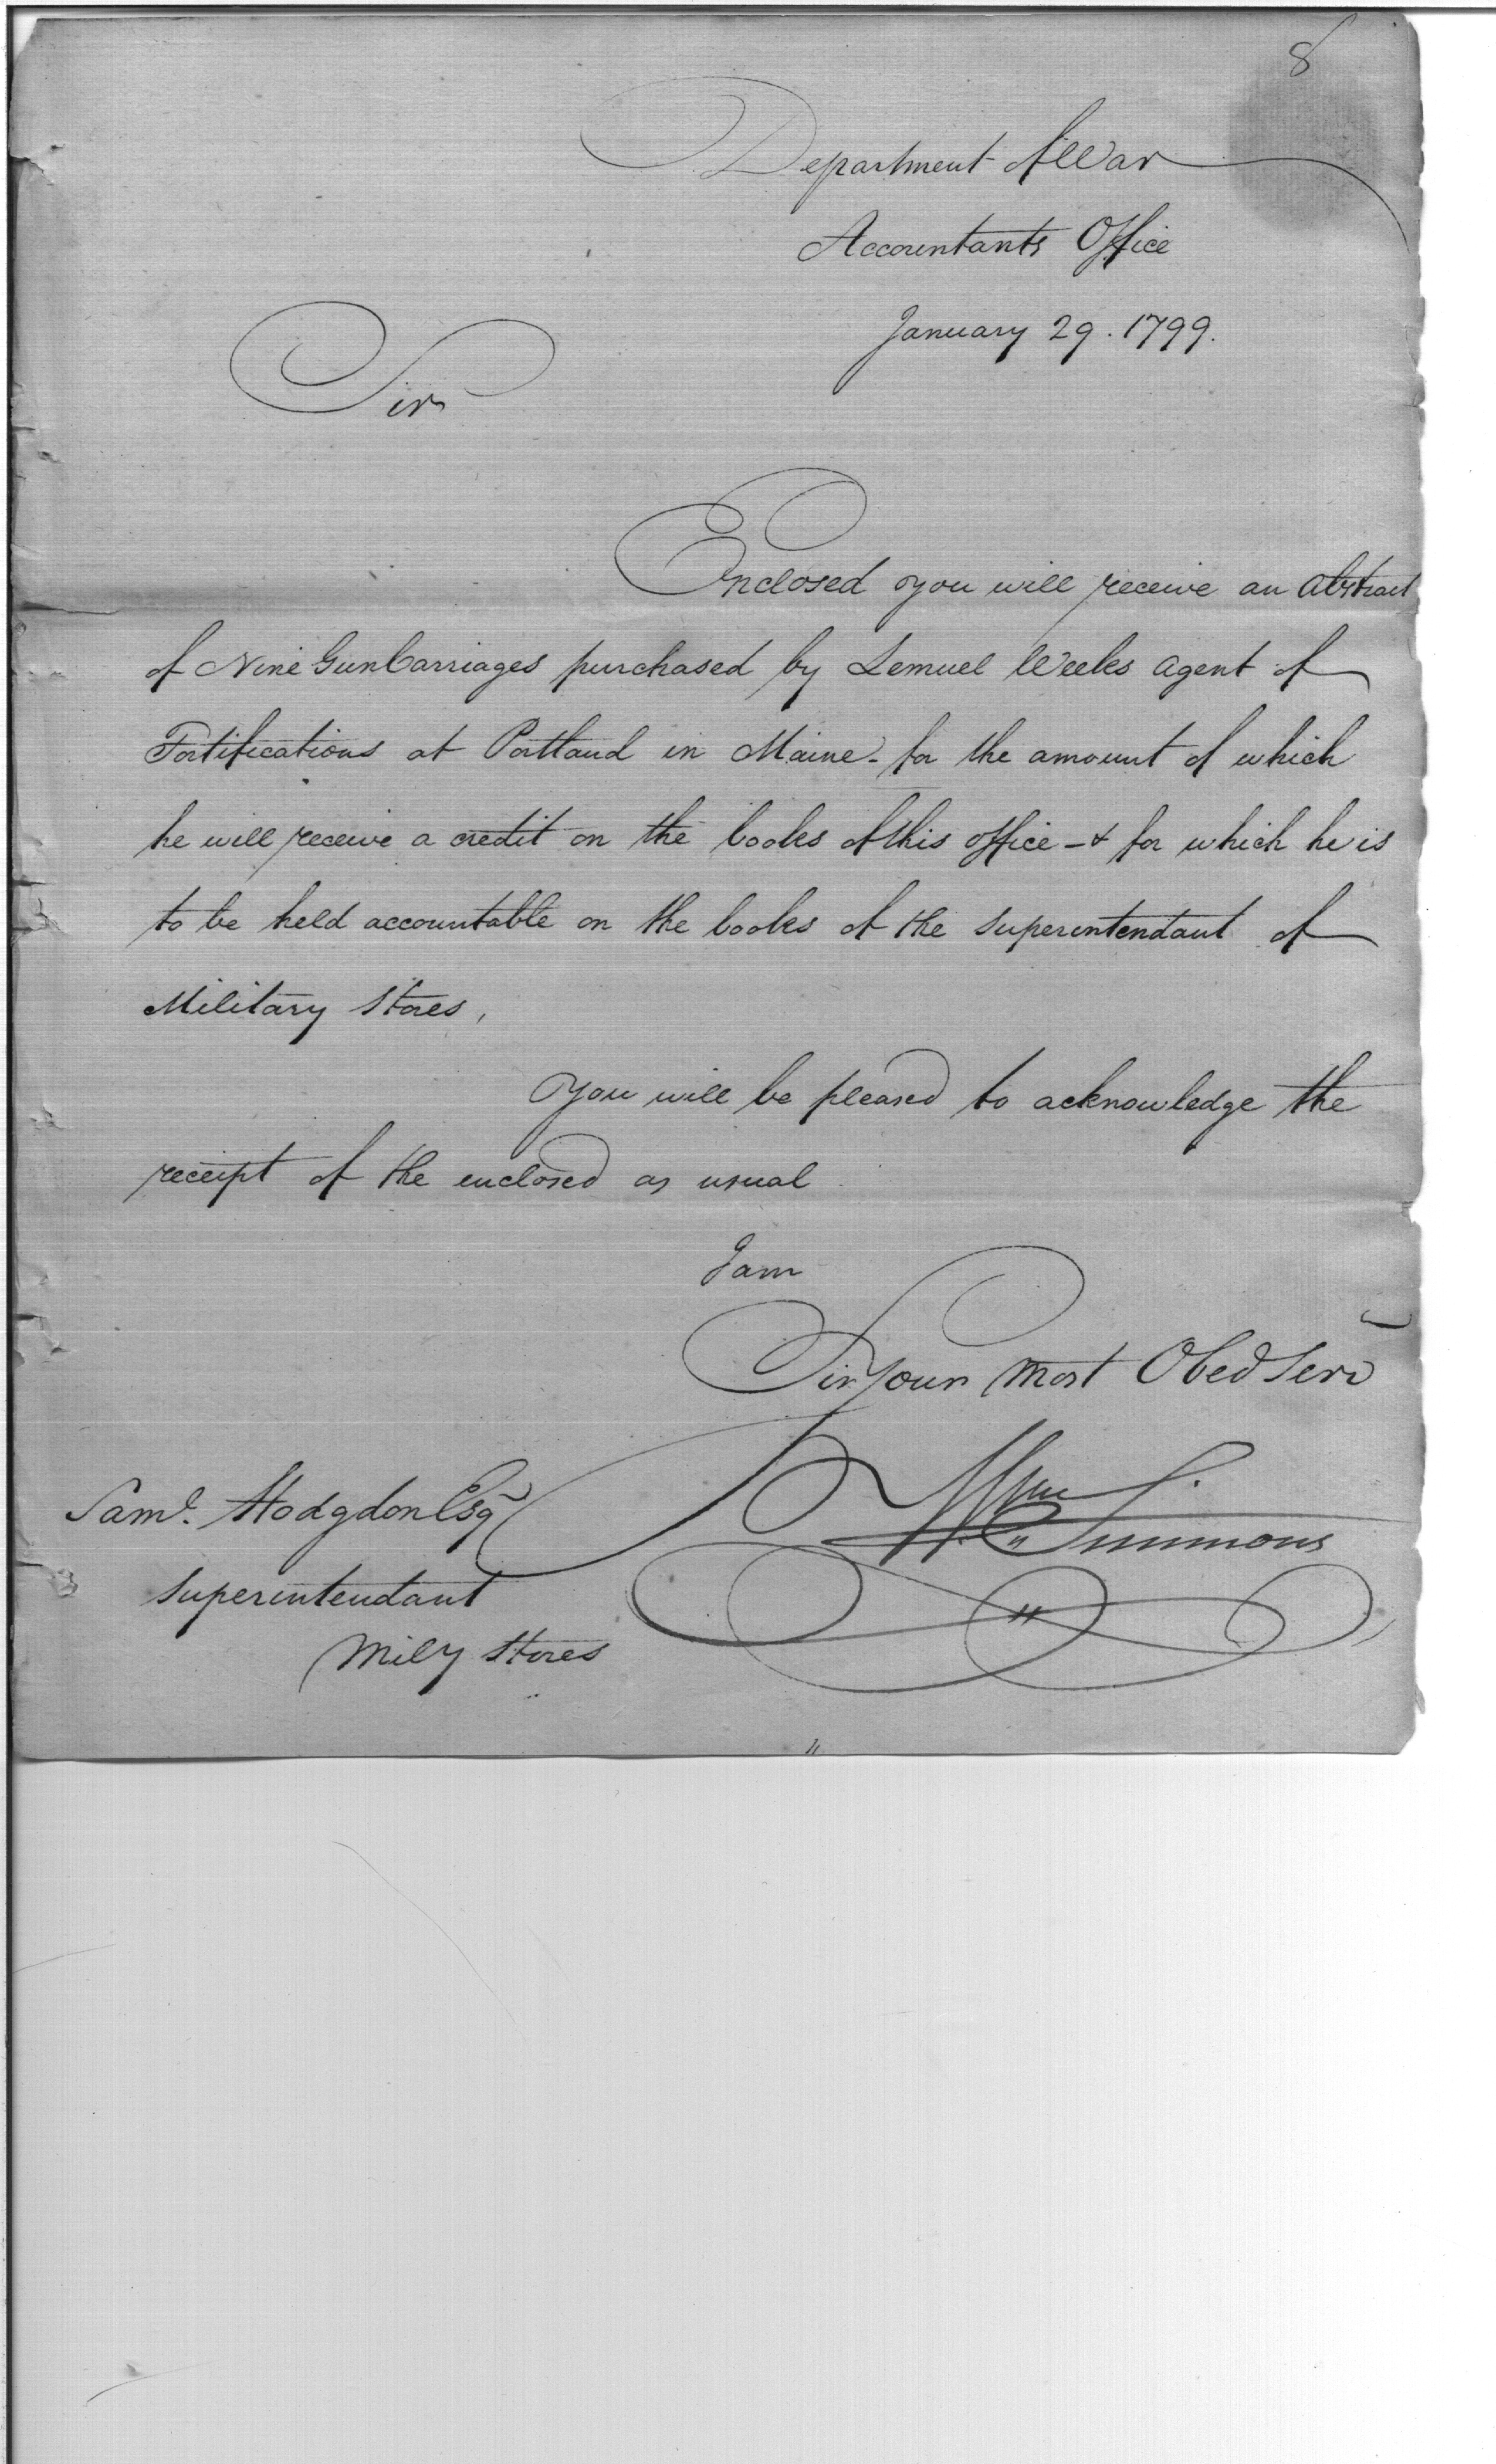 8
Department of War
Accountants Office
January 29. 1799.
Sir
Enclosed you will receive an Abstract
of Nine Gun Carriages purchased by Lemuel Weeks Agent of
Fortifications at Portland in Maine - for the amount of which
he will receive a credit on the books of this office - & for which he is
to be held accountable on the books of the Superintendant of
Military Stores,
You will be pleased to acknowledge the
receipt of the enclosed as usual
I am
Sir Your Most Obed Serv
Wm Simmons
Saml. Hodgdon Esq
Superintendant
Mily Stores